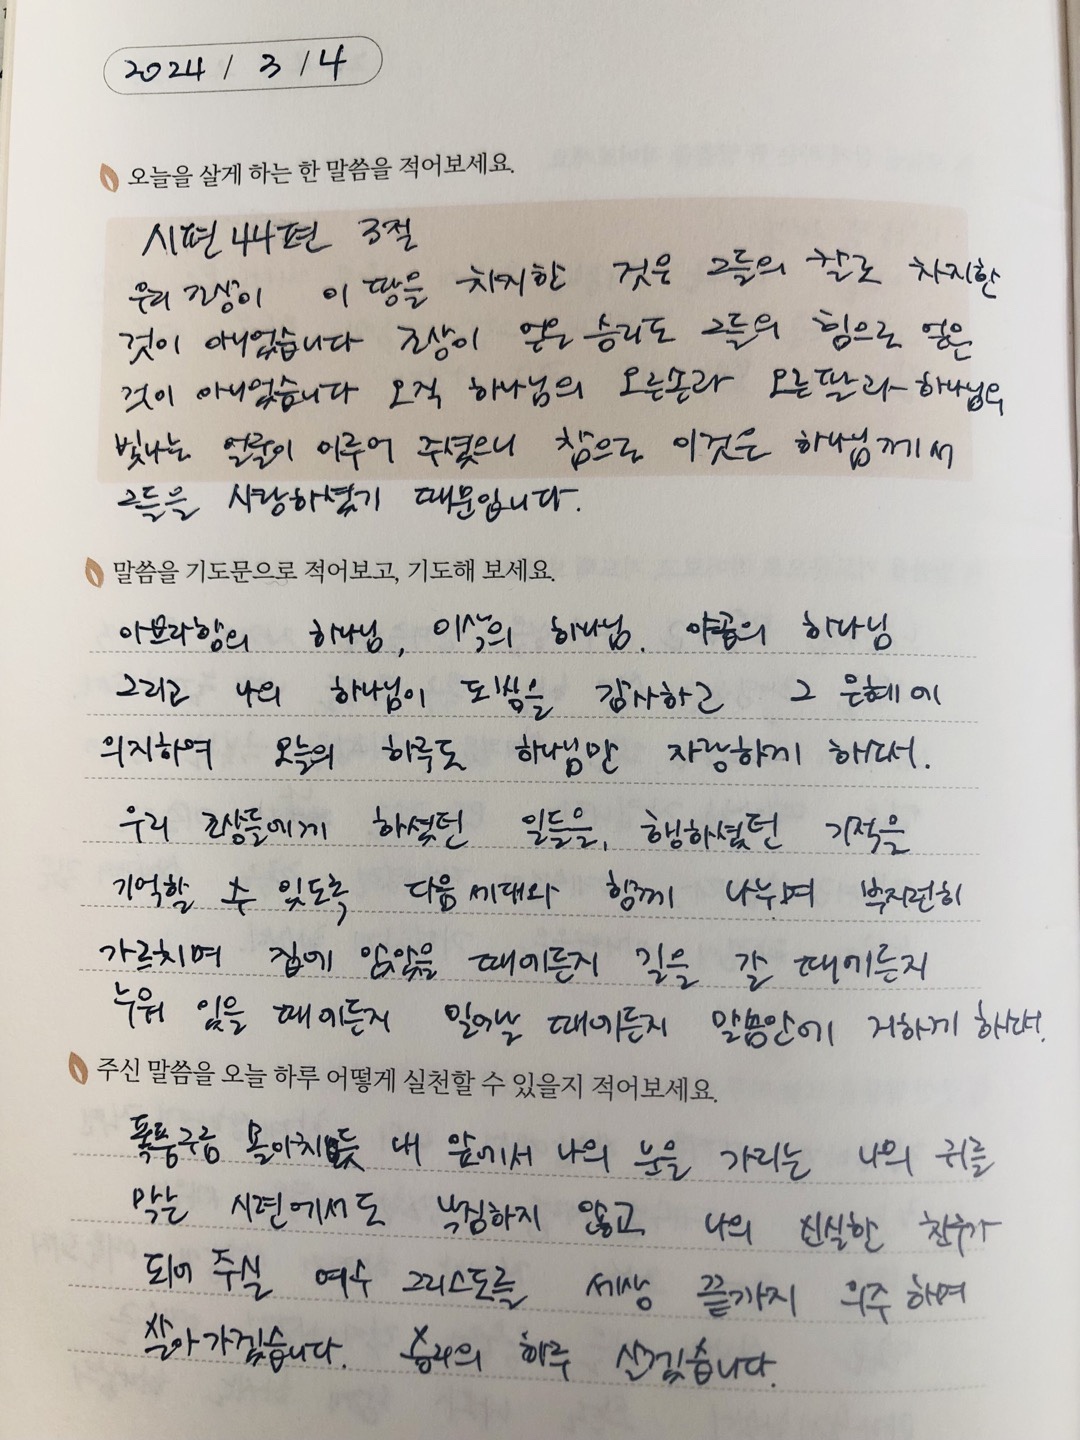 2024 / 3 / 4
오늘을 살게 하는 한 말씀을 적어보세요.
시편 44편 3절
우리 조상이 이 땅을 차지한 것은 그들의 칼로 차지한
것이 아니었습니다 조상이 얻은 승리도 그들의 힘으로 얻은
것이 아니었습니다 오직 하나님의 오른손과 오른팔과 하나님의
빛나는 얼굴이 이루어 주셨으니 참으로 이것은 하나님께서
그들을 사랑하셨기 때문입니다.
말씀을 기도문으로 적어보고, 기도해 보세요.
아브라함의 하나님, 이삭의 하나님. 야곱의 하나님
그리고 나의 하나님이 되심을 감사하고 그 은혜에
의지하여 오늘의 하루도 하나님만 자랑하게 하소서.
우리 조상들에게 하셨던 일들을, 행하셨던 기적을
기억할 수 있도록 다음 세대와 함께 나누며 부지런히
가르치며 집에 앉았을 때에든지 길을 갈 때에든지
누워 있을 때에든지 일어날 때에든지 말씀안에 거하게 하소서.
주신 말씀을 오늘 하루 어떻게 실천할 수 있을지 적어보세요.
폭풍구름 몰아치듯 내 앞에서 나의 눈을 가리는 나의 귀를
막는 시련에서도 낙심하지 않고 나의 신실한 친구가
되어 주실 예수 그리스도를 세상 끝까지 의주하며
살아가겠습니다. 승리의 하루 살겠습니다.